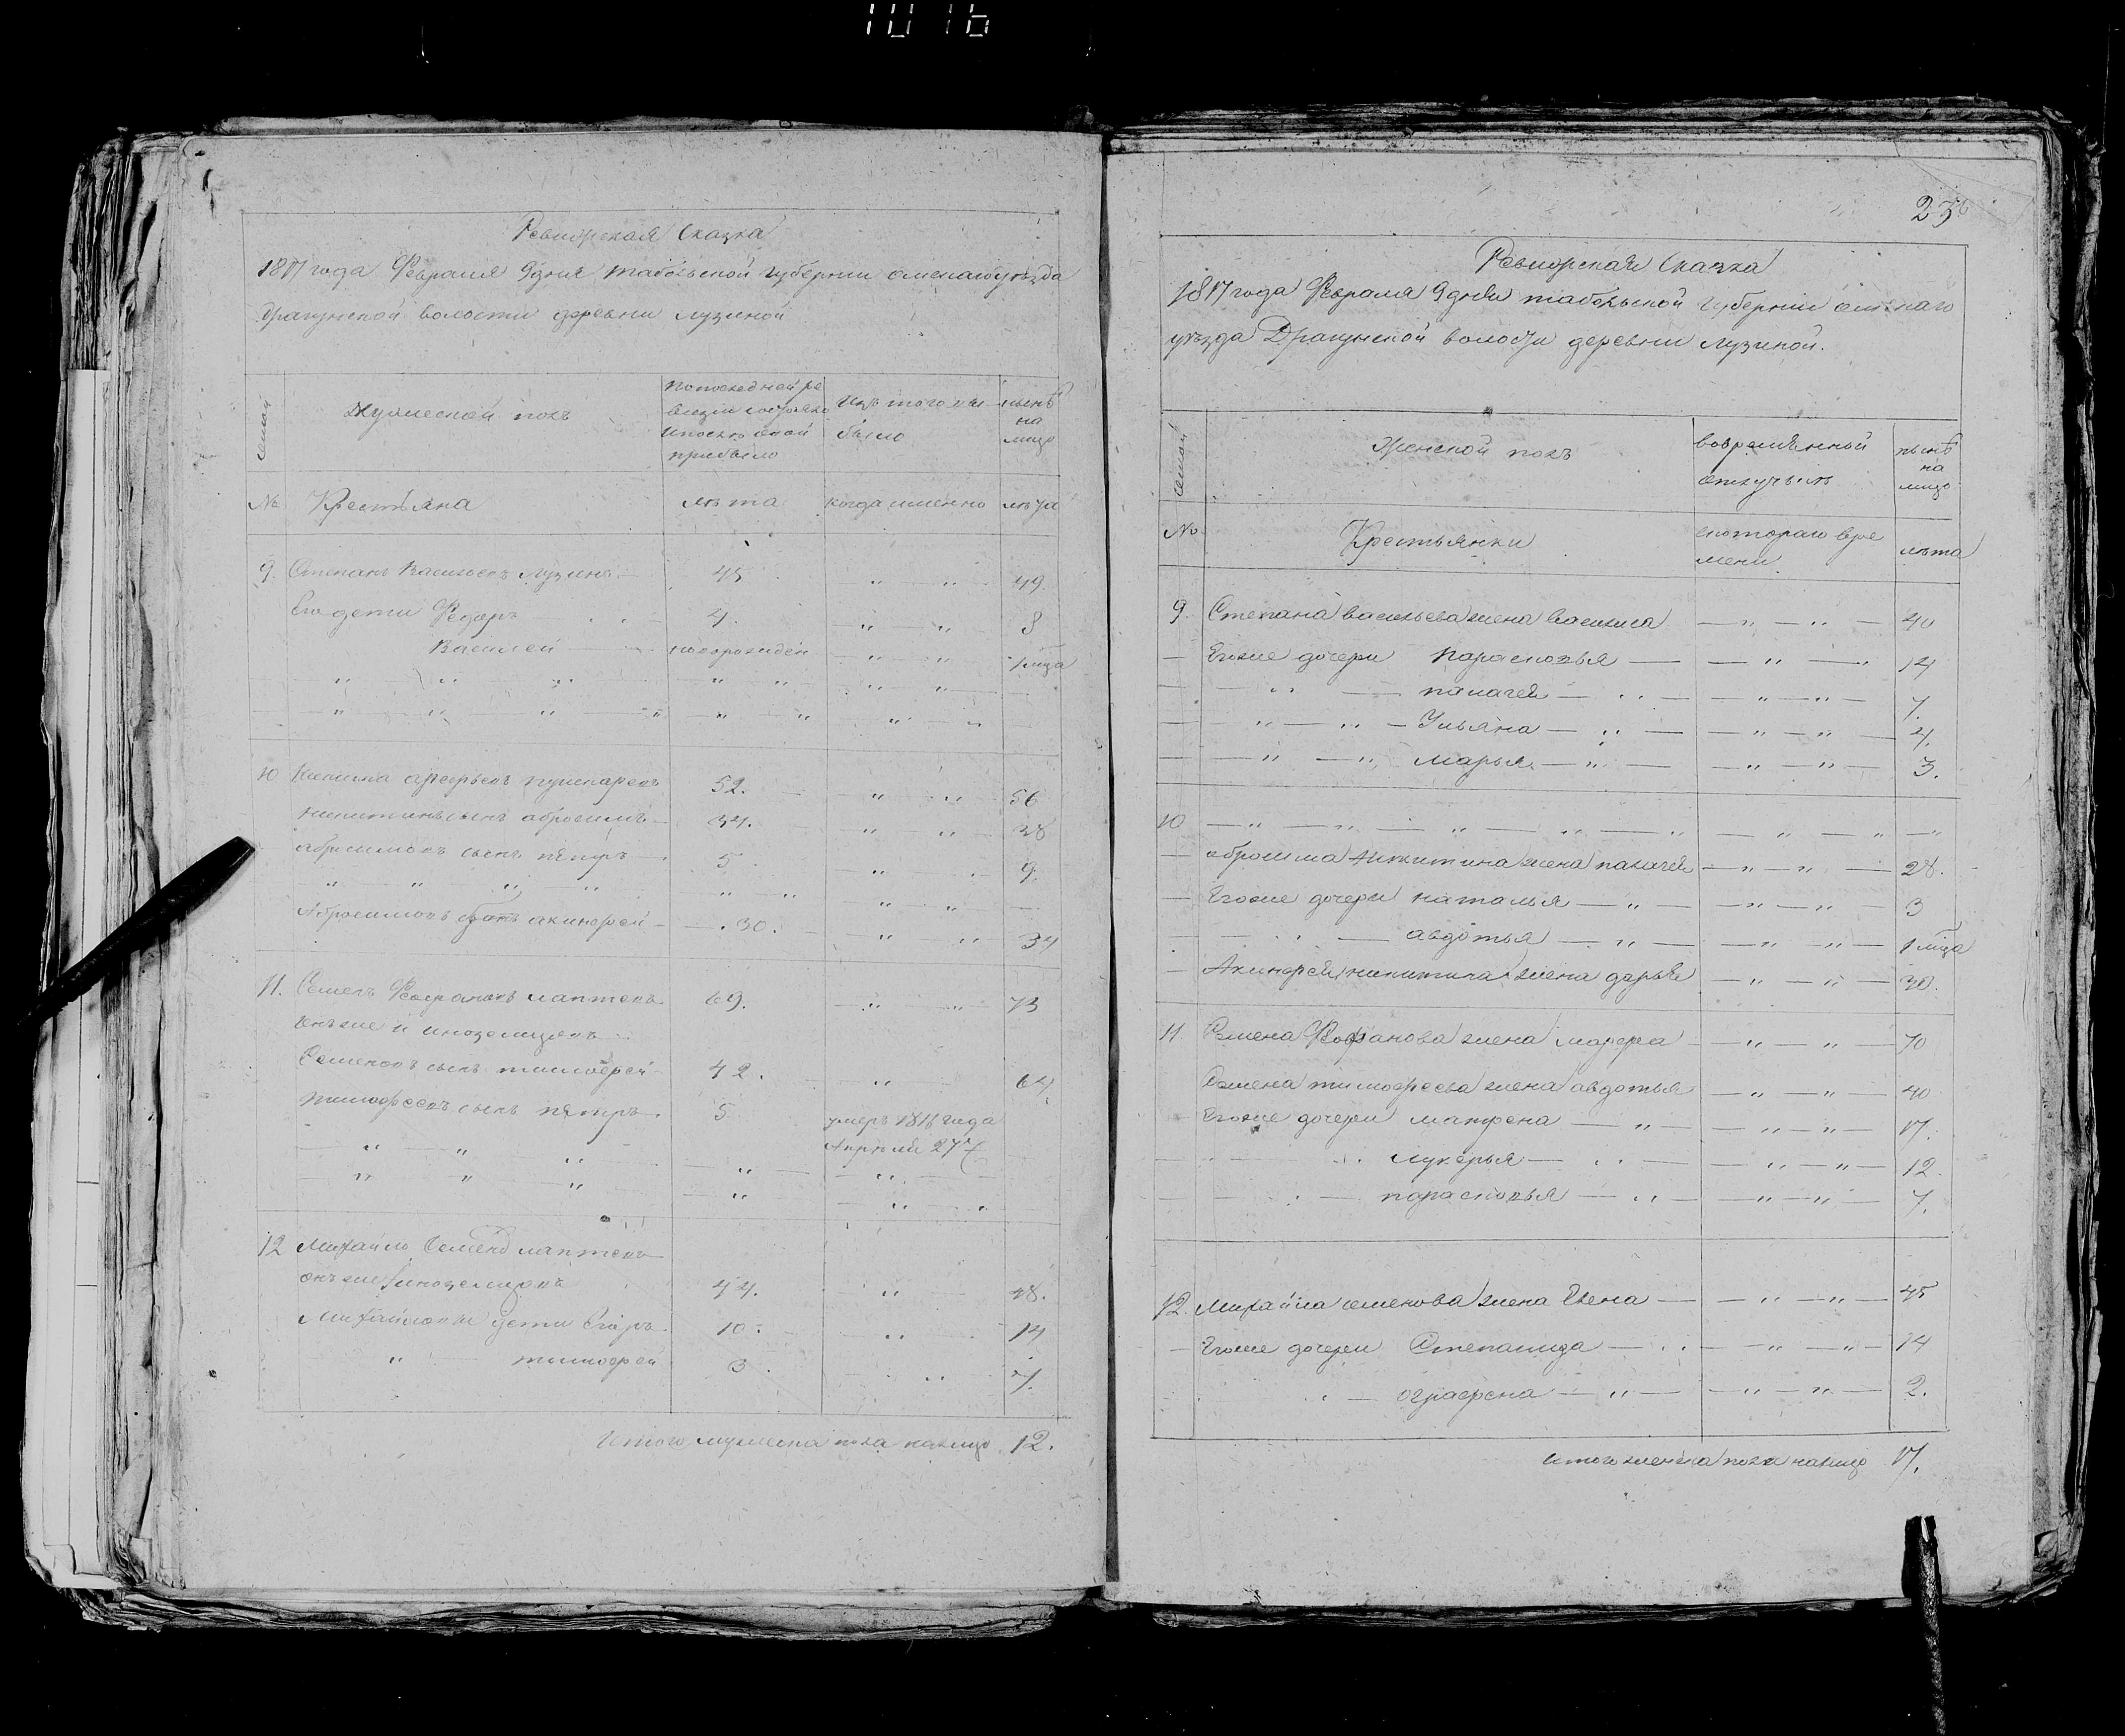 1016
Ревизская Сказка
1817 года Февраля 9 дня Табольской губернии омскаго уезда
Драгунской волости деревни лузиной
семьи
Мужеской полъ
По последней ре
визии состояло
и после оной
прибыло
Изъ того вы
было
ныне
на
лицо
№ Крестьяна лета когда имянно лета
9. Степанъ Васильевъ лузинъ 45 " " 49.
Его дети Федоръ 4. " " 8
Василей новорожден " " 1 мца
10 Никита арефьевъ пушкаревъ 52. " " 56
никитинъ сынъ абросимъ 34. " " 38
абросимовъ сынъ пётръ 5 " 9.
Абросимовъ братъ акинфей 30. " " 34
11. Семенъ Феофановъ лаптевъ 69. " " 73
онъ же и иноземцовъ
Семеновъ сынъ тимофей 42. " 64.
тимофеевъ сынъ пётръ. 5 умеръ 1816 года
Апреля 27
12 Михайло Семенов лаптевъ
онъ же иноземцовъ 44. " 48.
Михайловы дети Егоръ 10. " 14
" тимофей 3. " 7.
Итого мужеска пола налицо 12.
23
Ревизская Сказка
1817 года Февраля 9 дня табольской губернии омскаго
уезда Драгунской волости деревни лузиной.
семьи
Женской полъ
во времянной
отлучьке
ныне
на
лицо
№ Крестьянки
с котораго вре
мени
лета
9. Степана васильева жена василиса — " — " — 40
— Егоже дочери парасковья — — " — " 14
палагея — " — " — 7.
— " — " — Ульяна — " — — " — " — 4.
— " — " марья — " — — " — " — 3.
10 — " — " — " — " — " — " — " — "
— абросима никитина жена палагея — " — " — 28.
— Егоже дочери наталья — " — — " — " — 3
— авдотья — " — — " — " — 1 мца
— Акинфея никитина жена дарья — " — " — 30.
11. Семена Феофанова жена марфа — " — " — 70
Семена тимофеева жена авдотья — " — " — 40
Егоже дочери матрена — " — — " — " — 17.
лукерья — " — — " — " — 12
— парасковья — " — — " — " — 7.
12. Михайла семенова жена Елена — — " — " — 45
— Егоже дочери Степанида — " — " — " — 14
— ографена — " — — " — " — 2.
Итого женска пола налицо 17.